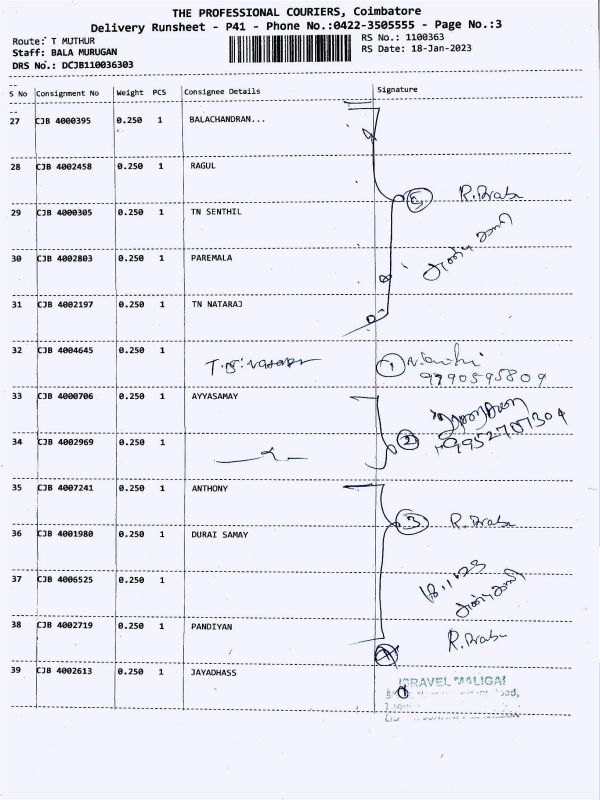 THE PROFESSIONAL COURIERS, Coimbatore
Delivery Runsheet - P41 - Phone No.:0422-3505555 - Page No.:3
Route: T MUTHUR
RS No.: 1100363
Staff: BALA MURUGAN
RS Date: 18-Jan-2023
DRS No.: DCJB110036303
S No Consignment No Weight PCS Consignee Details Signature
27 CJB 4000395 0.250 1 BALACHANDRAN...
28 CJB 4002458 0.250 1 RAGUL
5 R.Prabu
29 CJB 4000305 0.250 1 TN SENTHIL
30 CJB 4002803 0.250 1 PAREMALA
31 CJB 4002197 0.250 1 TN NATARAJ
32 CJB 4004645 0.250 1
1
9790595809
33 CJB 4000706 0.250 1 AYYASAMAY
34 CJB 4002969 0.250 1
2 9952707304
35 CJB 4007241 0.250 1 ANTHONY
3 R.Prabu
36 CJB 4001980 0.250 1 DURAI SAMAY
37 CJB 4006525 0.250 1
18.1.23
38 CJB 4002719 0.250 1 PANDIYAN
R.Prabu
39 CJB 4002613 0.250 1 JAYADHASS
MALIGAI